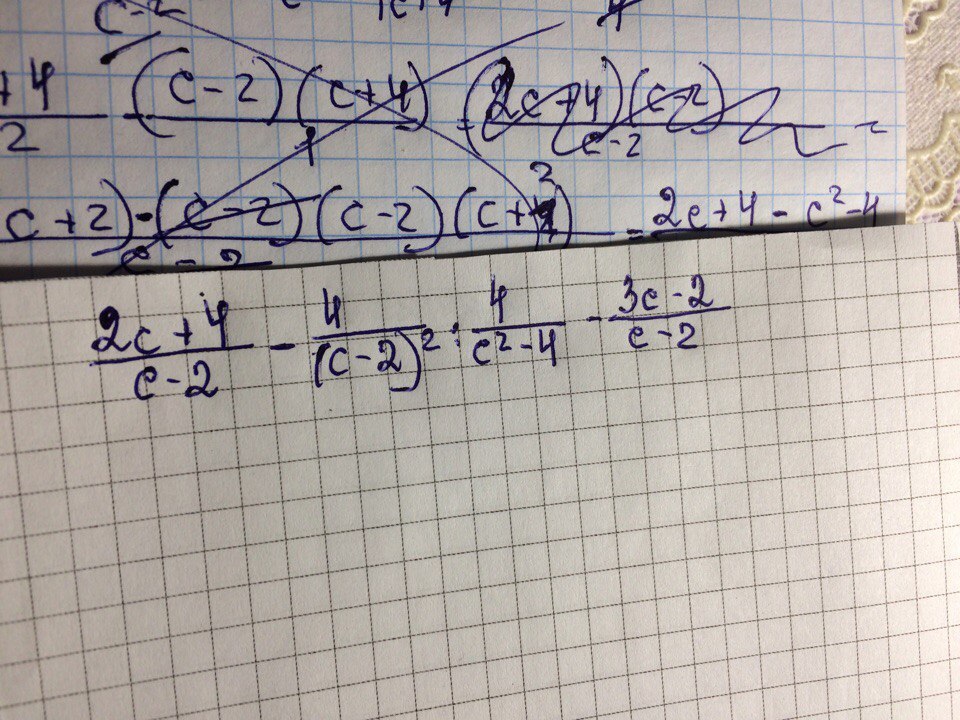 c-2
+4/2 - (c-2)(c+4)/1 = (2c+4)(c-2)/c-2 =
c+2)-(c-2)(c-2)(c+2)/c-2 = 2c+4-c²-4
2c+4/c-2 - 4/(c-2)² : 4/c²-4 - 3c-2/c-2